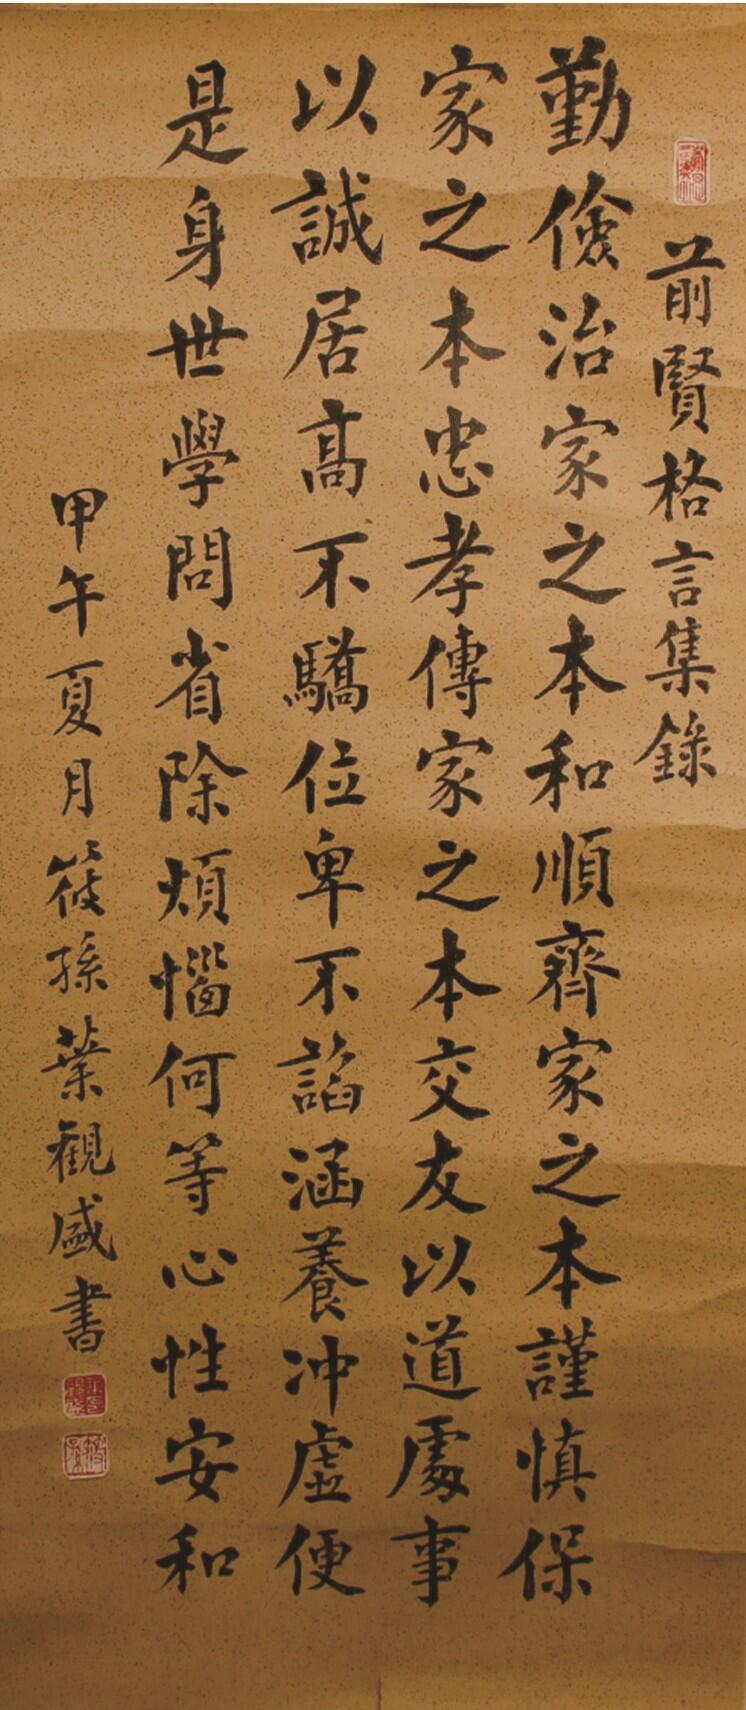 前賢格言集錄
勤儉治家之本和順齊家之本謹慎保
家之本忠孝傳家之本交友以道處事
以誠居高不驕位卑不諂涵養沖虛便
是身世學問省除煩惱何等心性安和
甲午夏月筱孫葉觀盛書